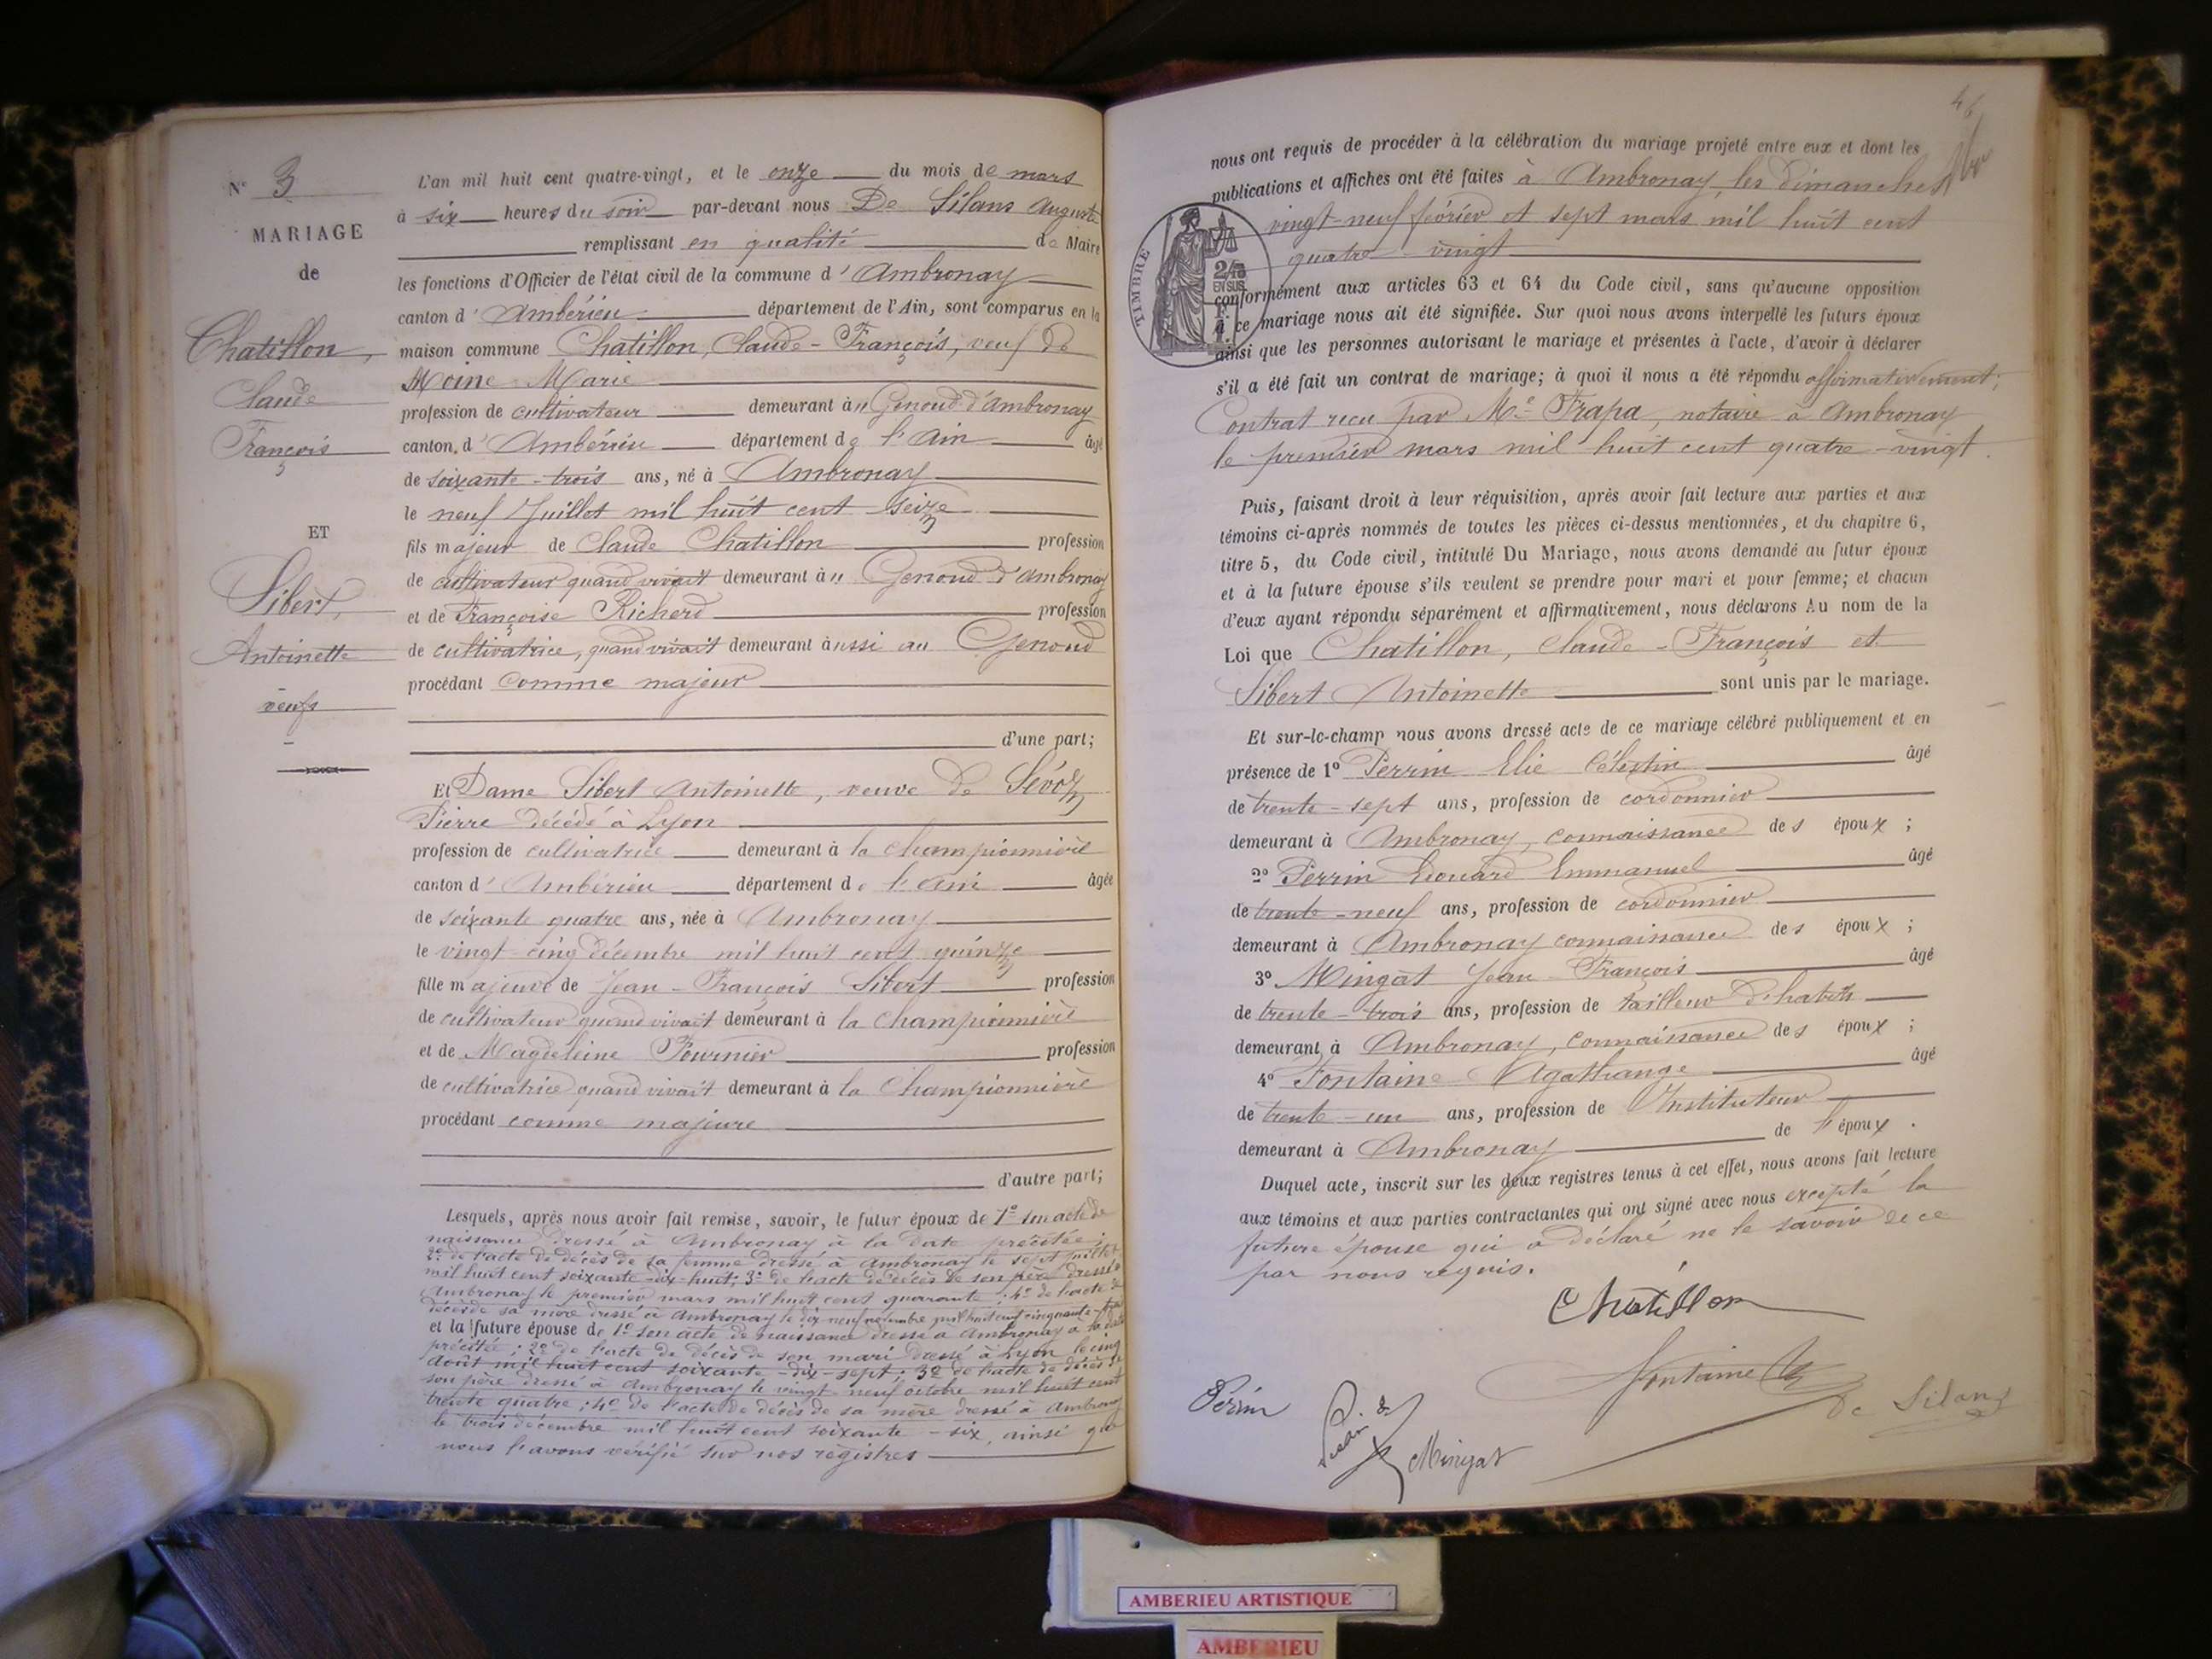 N° 3
MARIAGE
de
Chatillon,
Claude
François
ET
Sibert,
Antoinette
veufs
L'an mil huit cent quatre-vingt, et le onze du mois de mars
à six heures du soir par-devant nous De Silans Auguste
remplissant en qualité de Maire
les fonctions d'Officier de l'état civil de la commune d'Ambronay
canton d'Ambérieu département de l'Ain, sont comparus en la
maison commune Chatillon, Claude-François, veuf de
Moine Marie
profession de cultivateur demeurant au Genoud d'Ambronay
canton d'Ambérieu département de l'Ain âgé
de soixante-trois ans, né à Ambronay
le neuf Juillet mil huit cent seize
fils majeur de Claude Chatillon profession
de cultivateur quand vivait demeurant au Genoud d'Ambronay
et de Françoise Richerd profession
de cultivatrice, quand vivait demeurant aussi au Genoud
procédant comme majeur
d'une part;
Et Dame Sibert Antoinette, veuve de Sévoz
Pierre décédé à Lyon
profession de cultivatrice demeurant à la Championnière
canton d'Ambérieu département de l'Ain âgée
de soixante quatre ans, née à Ambronay
le vingt-cinq décembre mil huit cent quinze
fille majeure de Jean-François Sibert profession
de cultivateur quand vivait demeurant à la Championnière
et de Magdeleine Fournier profession
de cultivatrice quand vivait demeurant à la Championnière
procédant comme majeure
d'autre part;
Lesquels, après nous avoir fait remise, savoir, le futur époux de 1° son acte de
naissance dressé à Ambronay à la date précitée;
2° de l'acte de décès de sa femme dressé à Ambronay le sept juillet
mil huit cent soixante-dix-huit; 3° de l'acte de décès de son père dressé à
Ambronay le premier mars mil huit cent quarante; 4° de l'acte de
décès de sa mère dressé à Ambronay le dix neuf novembre mil huit cent cinquante-
et la future épouse de 1° son acte de naissance dressé à Ambronay à la date
précitée; 2° de l'acte de décès de son mari dressé à Lyon le cinq
août mil huit cent soixante-dix-sept; 3° de l'acte de décès de
son père dressé à Ambronay le vingt neuf octobre mil huit cent
trente quatre; 4° de l'acte de décès de sa mère dressé à Ambronay
le trois décembre mil huit cent soixante-six, ainsi que
nous l'avons vérifié sur nos registres
46
nous ont requis de procéder à la célébration du mariage projeté entre eux et dont les
publications et affiches ont été faites à Ambronay, les dimanches
vingt-neuf février et sept mars mil huit cent
quatre-vingt
TIMBRE
2/10
EN SUS
conformément aux articles 63 et 64 du Code civil, sans qu'aucune opposition
à ce mariage nous ait été signifiée. Sur quoi nous avons interpellé les futurs époux
ainsi que les personnes autorisant le mariage et présentes à l'acte, d'avoir à déclarer
s'il a été fait un contrat de mariage; à quoi il nous a été répondu affirmativement;
Contrat reçu par Me Frapa, notaire à Ambronay
le premier mars mil huit cent quatre-vingt.
Puis, faisant droit à leur réquisition, après avoir fait lecture aux parties et aux
témoins ci-après nommés de toutes les pièces ci-dessus mentionnées, et du chapitre 6,
titre 5, du Code civil, intitulé Du Mariage, nous avons demandé au futur époux
et à la future épouse s'ils veulent se prendre pour mari et pour femme; et chacun
d'eux ayant répondu séparément et affirmativement, nous déclarons Au nom de la
Loi que Chatillon, Claude-François et
Sibert Antoinette sont unis par le mariage.
Et sur-le-champ nous avons dressé acte de ce mariage célébré publiquement et en
présence de 1° Perrin Elie Célestin âgé
de trente-sept ans, profession de cordonnier
demeurant à Ambronay, connaissance des époux;
2° Perrin Léonard Emmanuel âgé
de trente-neuf ans, profession de cordonnier
demeurant à Ambronay connaissance des époux;
3° Mingat Jean-François âgé
de trente-trois ans, profession de tailleur d'habits
demeurant à Ambronay, connaissance des époux;
4° Fontaine Agathange âgé
de trente-un ans, profession de Instituteur
demeurant à Ambronay de l'époux.
Duquel acte, inscrit sur les deux registres tenus à cet effet, nous avons fait lecture
aux témoins et aux parties contractantes qui ont signé avec nous excepté la
future épouse qui a déclaré ne le savoir de ce
par nous requis.
Chatillon
Fontaine
Périn
Mingat
De Silans
AMBERIEU ARTISTIQUE
AMBERIEU